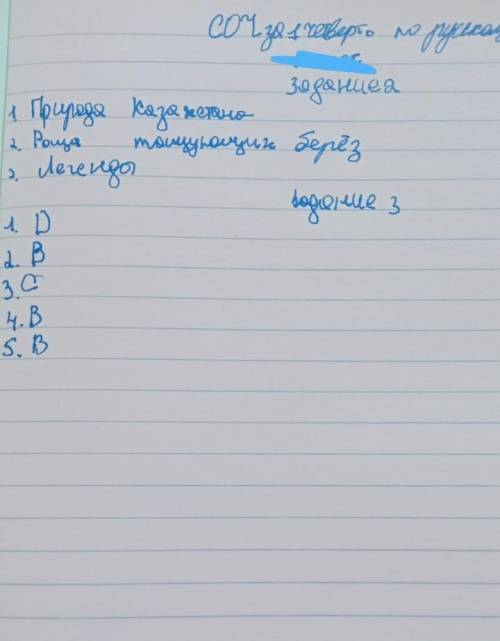 СОЧ за 1 четверть по русском
задание2
1 Природа Казахстана
2. Роща танцующих берёз
3. Легенды
задание 3
1. D
2. B
3. C
4. B
5. B